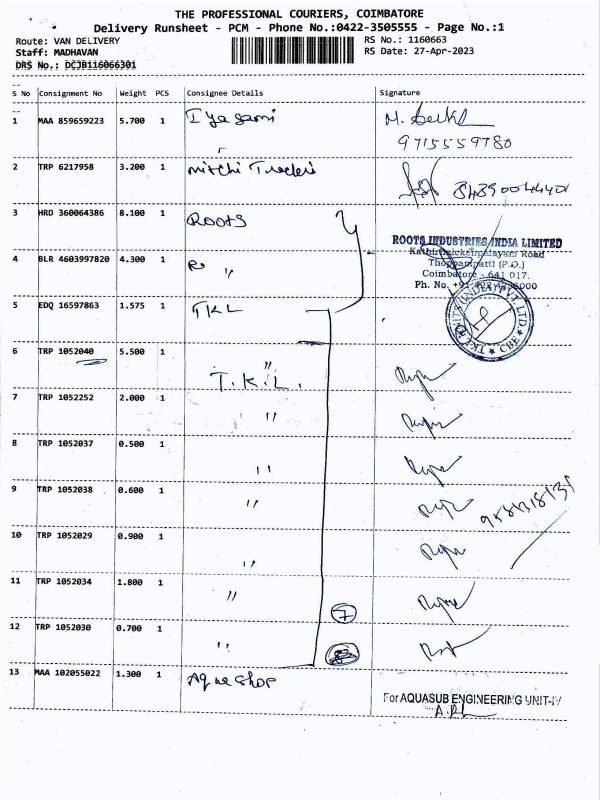 THE PROFESSIONAL COURIERS, COIMBATORE
Delivery Runsheet - PCM - Phone No.:0422-3505555 - Page No.:1
Route: VAN DELIVERY RS No.: 1160663
Staff: MADHAVAN RS Date: 27-Apr-2023
DRS No.: DCJB116066301
S No Consignment No Weight PCS Consignee Details Signature
1 MAA 859659223 5.700 1
9715559780
2 TRP 6217958 3.200 1
3 HRD 360064386 8.100 1 ROOTS
ROOTS INDUSTRIES INDIA LIMITED
Kathirnaickenpalayam Road
Thoppampatti (P.O.)
Coimbatore - 641 017.
4 BLR 4603997820 4.300 1 R "
5 EDQ 16597863 1.575 1 TKL
6 TRP 1052040 5.500 1 "
T.K.L.
7 TRP 1052252 2.000 1 "
8 TRP 1052037 0.500 1 "
9 TRP 1052038 0.600 1 "
10 TRP 1052029 0.900 1 "
11 TRP 1052034 1.800 1 "
7
12 TRP 1052030 0.700 1 "
13 MAA 102055022 1.300 1 Aqua shop
For AQUASUB ENGINEERING UNIT-IV